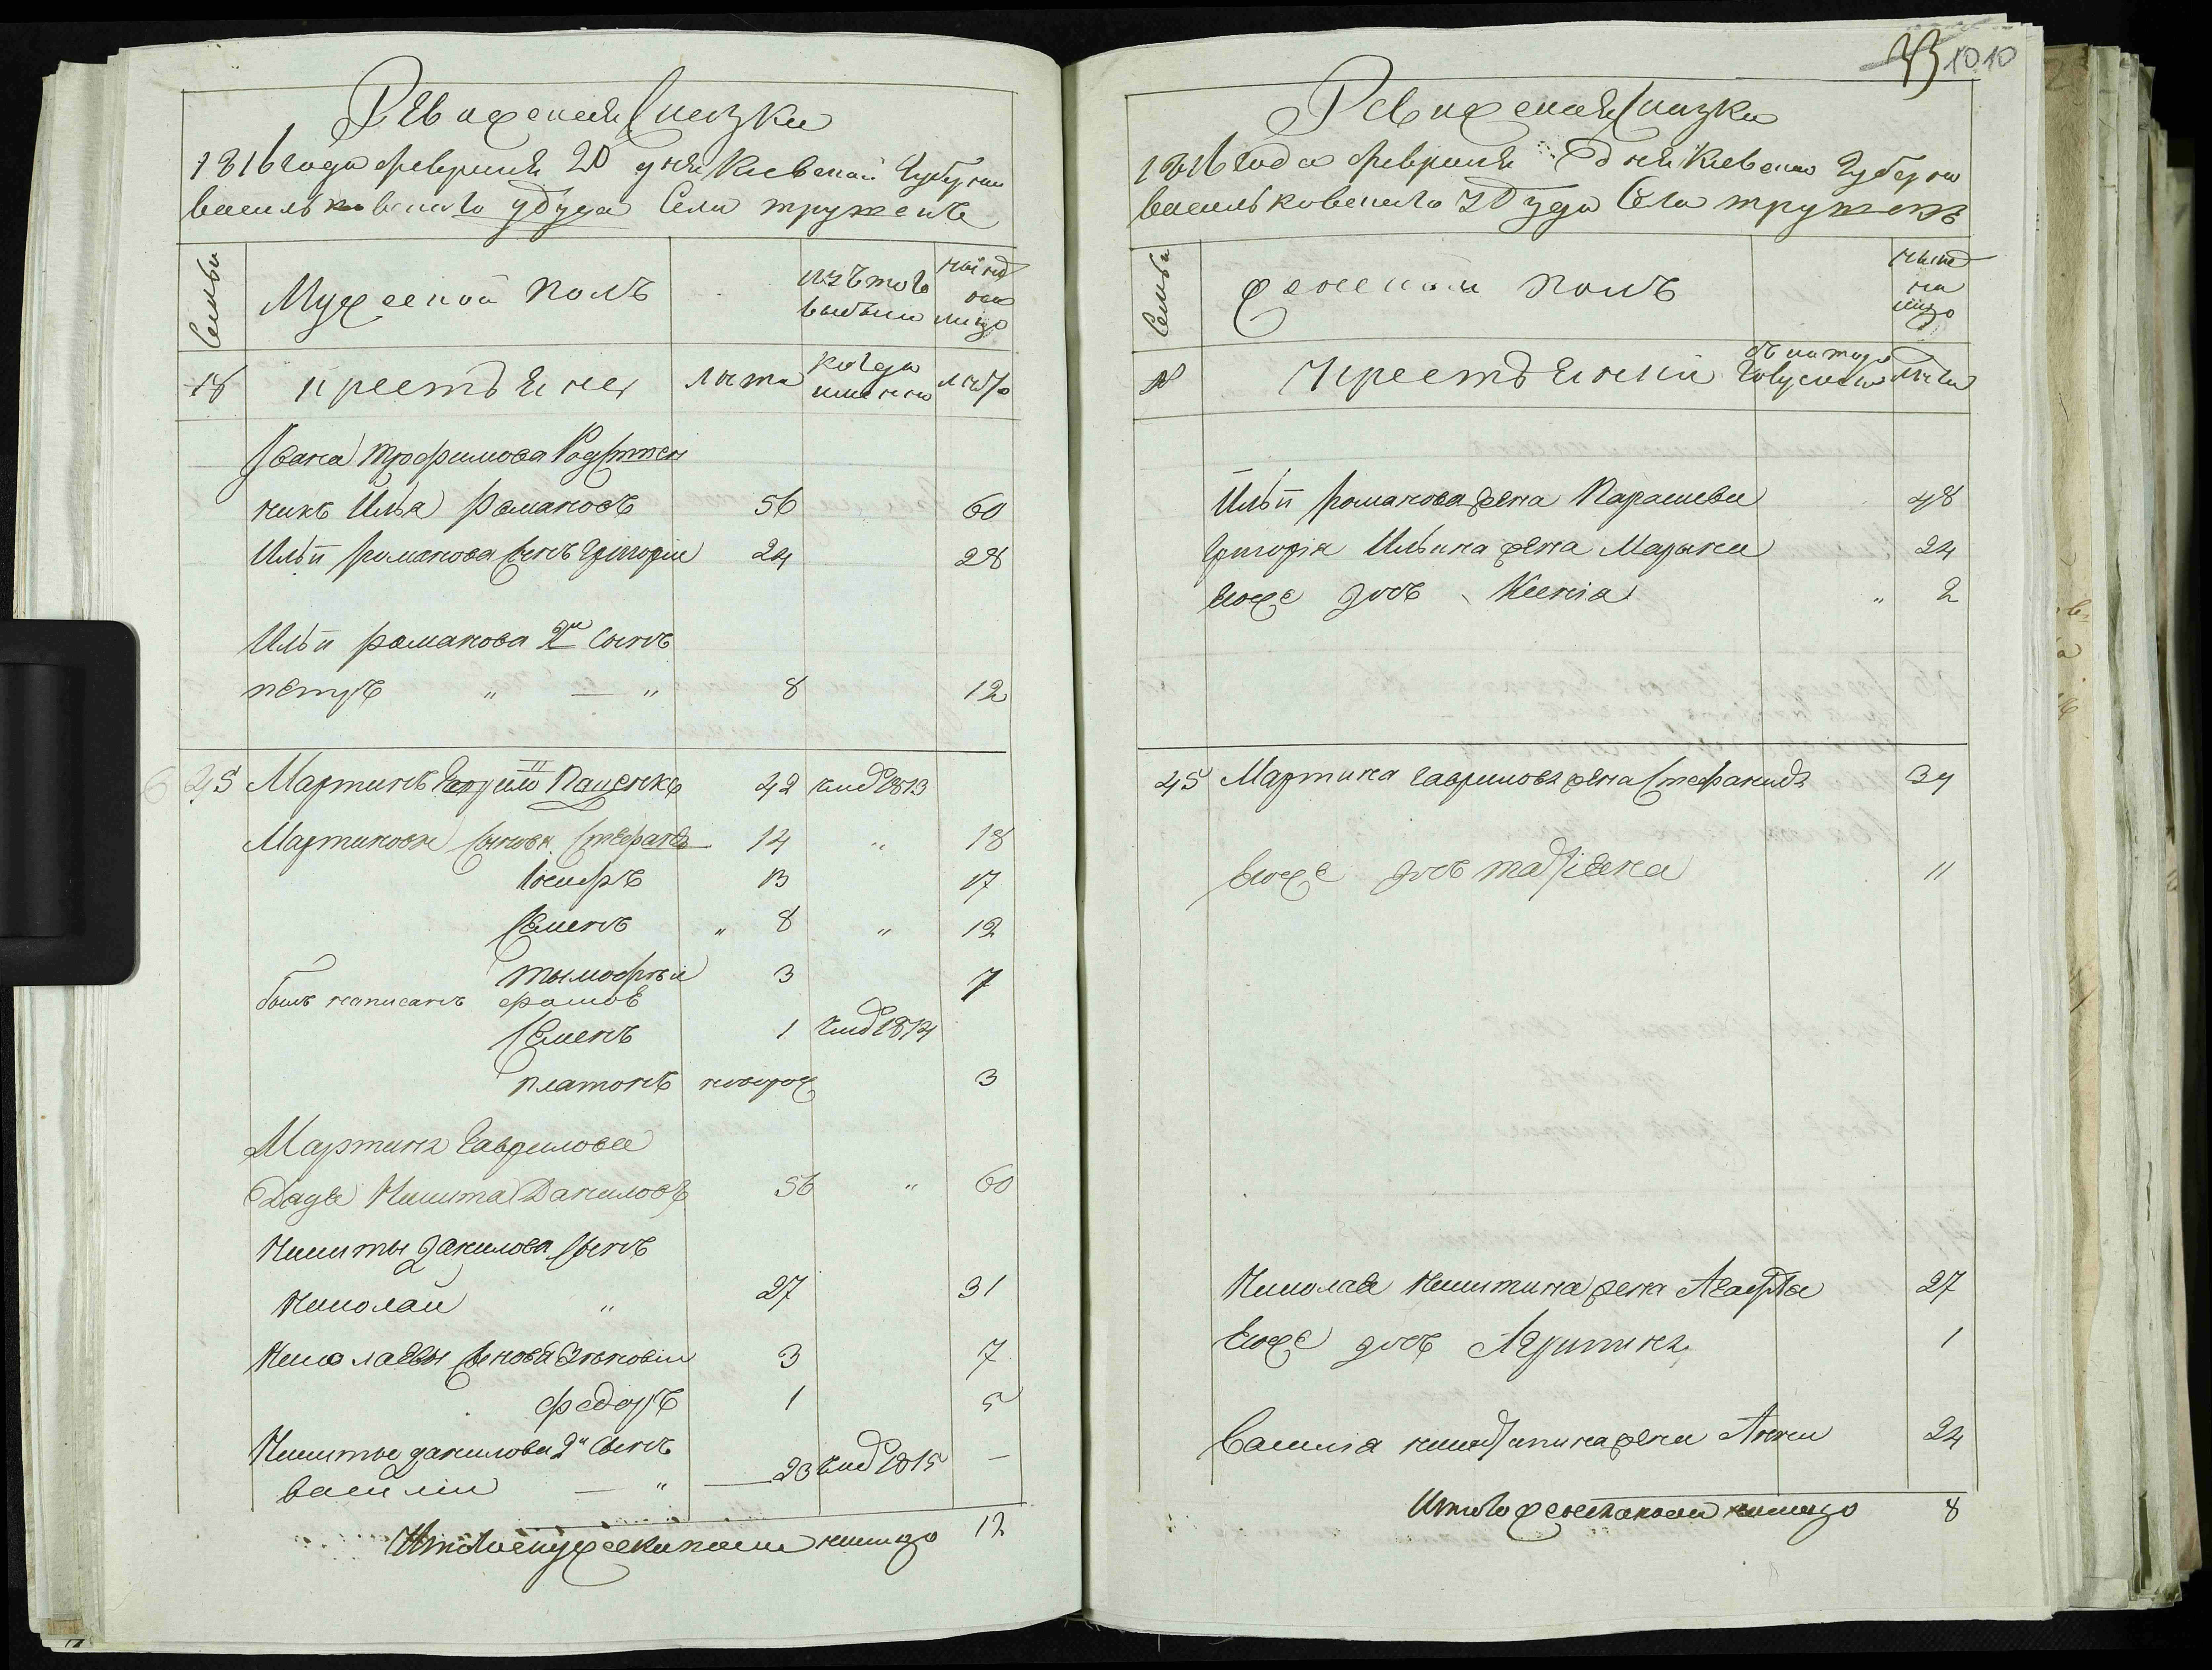 Ревижская Сказка
1816 года февраля 20 дня Киевской Губернии
васильковского уезда Села тружекъ
Семьи
Мужеской полъ
изъ того
выбыли
ныне
на
лицо
№
крестьяне
лета
когда
именно
лета
Ивана трофимова
никъ Илья романовъ 56 60
Ильи романова сынъ Григории 24 28
Ильи романова 2й сынъ
петръ " — " 8 12
6 45 Мартинъ Гаврило Паценко 42 умер 1813
Мартиновы сыновя Стефанъ 14 " 18
Иосифъ 13 17
Семенъ " 8 " 12
тымофеи 3 7
былъ написанъ фамов
Семенъ 1 умер 1814
платонъ новорож 3
Мартина Гаврилова
Дядя Никита Даниловъ 56 " 60
Никиты данилова сынъ
Николаи " 27 31
Николаевы сыновя Зиновии 3 7
федоръ 1 5
Никиты данилова 2й сынъ
василии — " — 23 умер 1815 —
Итого мужеска пола налицо 12
33 1010
Ревижская Сказка
1816 года февраля 20 дня Киевской Губернии
васильковского уезда Села тружекъ
Семьи
Женской полъ
ныне
на
лицо
№
Крестьянки
лета
Ильи романова жена Парасцева 48
Григория Ильина жена Марына 24
Еюже дочь Ксения " 2
45 Мартина Гаврилова жена Стефанида 34
Еюже дочь татияна 11
Николая Никитина жена Агафья 27
Еюже дочь Агрипина 1
Василия никитина жена Анна 24
Итого женска пола налицо 8